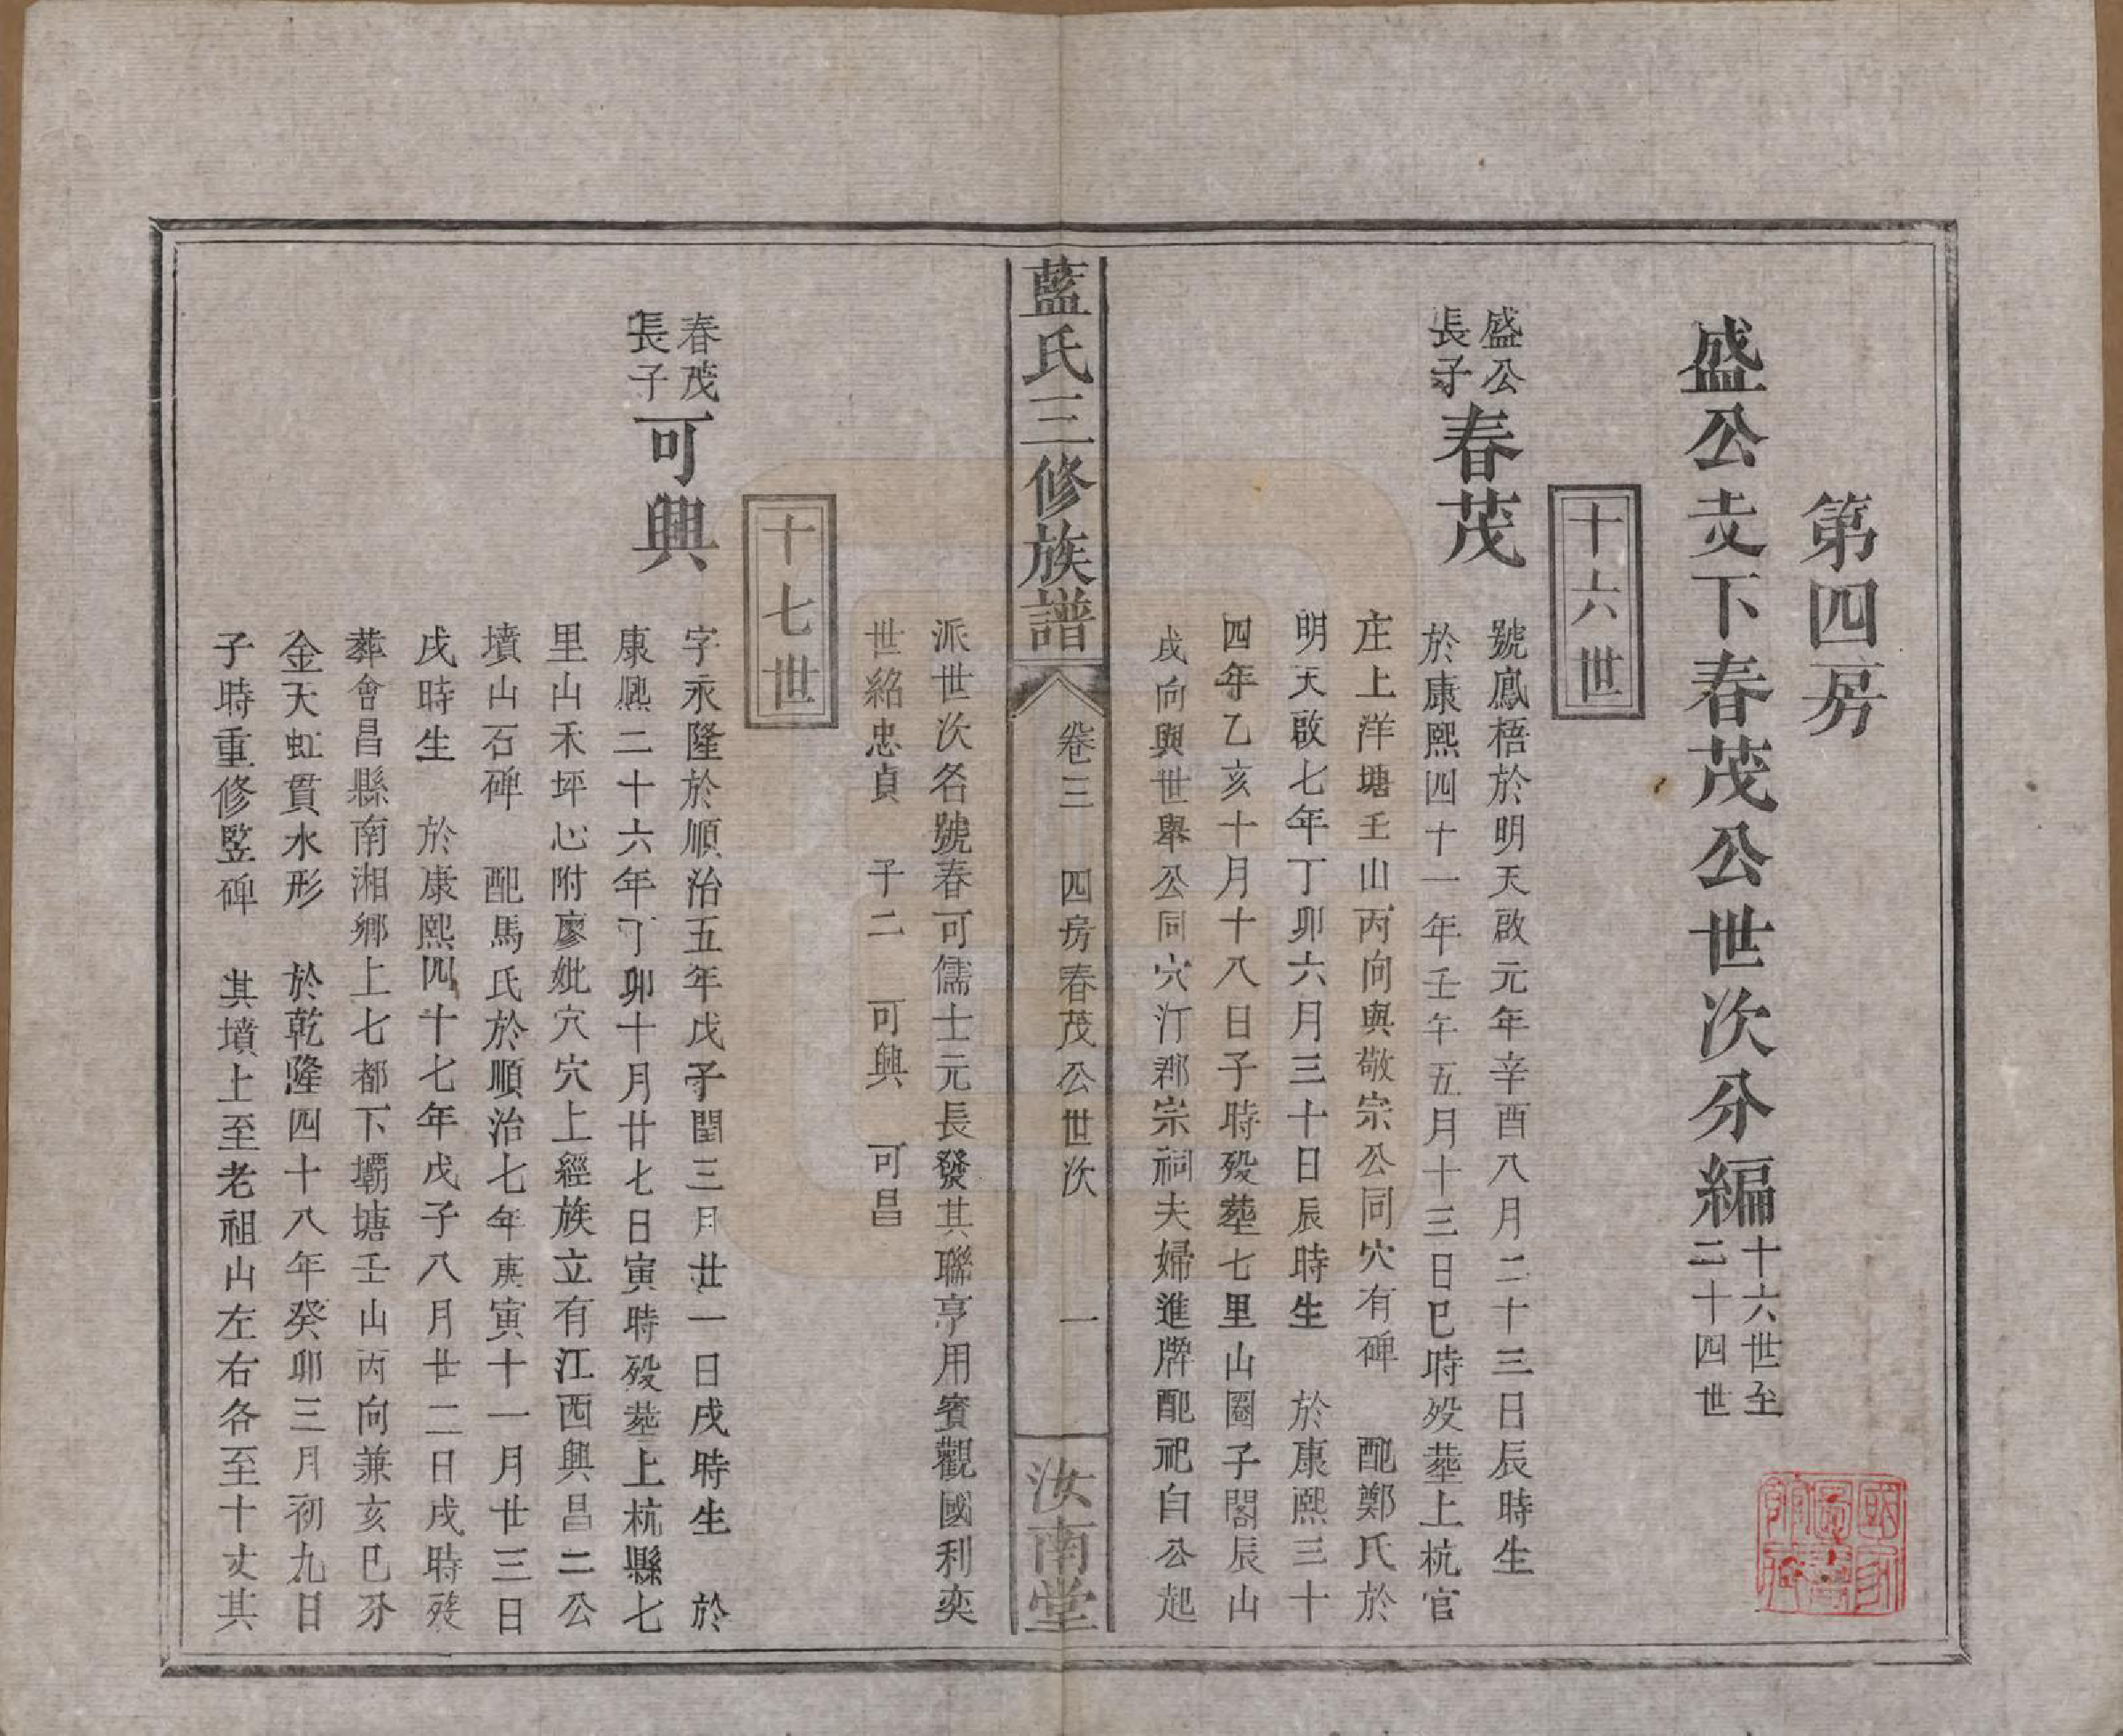 第四房
盛公支下春茂公世次分編
十六世至
二十四世
十六世
盛公
長子
春茂
號鳳梧於明天啟元年辛酉八月二十三日辰時生
於康熙四十一年壬午五月十三日巳時歿塟上杭官
庄上洋塘壬山丙向與敬宗公同穴有碑 配鄭氏於
明天啟七年丁卯六月三十日辰時生 於康熙三十
四年乙亥十月十八日子時歿塟七里山圈子閣辰山
戌向與世舉公同穴汀郡宗祠夫婦進牌配祀白公起
藍氏三修族譜
卷三 四房春茂公世次 一
汝南堂
派世次名號春可儒士元長發其聯亨用賓觀國利奕
世紹忠貞 子二 可興 可昌
十七世
春茂
長子
可興
字永隆於順治五年戊子閏三月廿一日戌時生 於
康熙二十六年丁卯十月廿七日寅時歿塟上杭縣七
里山禾坪心附廖妣穴穴上經族立有江西興昌二公
墳山石碑 配馬氏於順治七年庚寅十一月廿三日
戌時生 於康熙四十七年戊子八月廿二日戌時歿
葬會昌縣南湘鄉上七都下壩塘壬山丙向兼亥巳分
金天虹貫水形 於乾隆四十八年癸卯三月初九日
子時重修竪碑 其墳上至老祖山左右各至十丈其